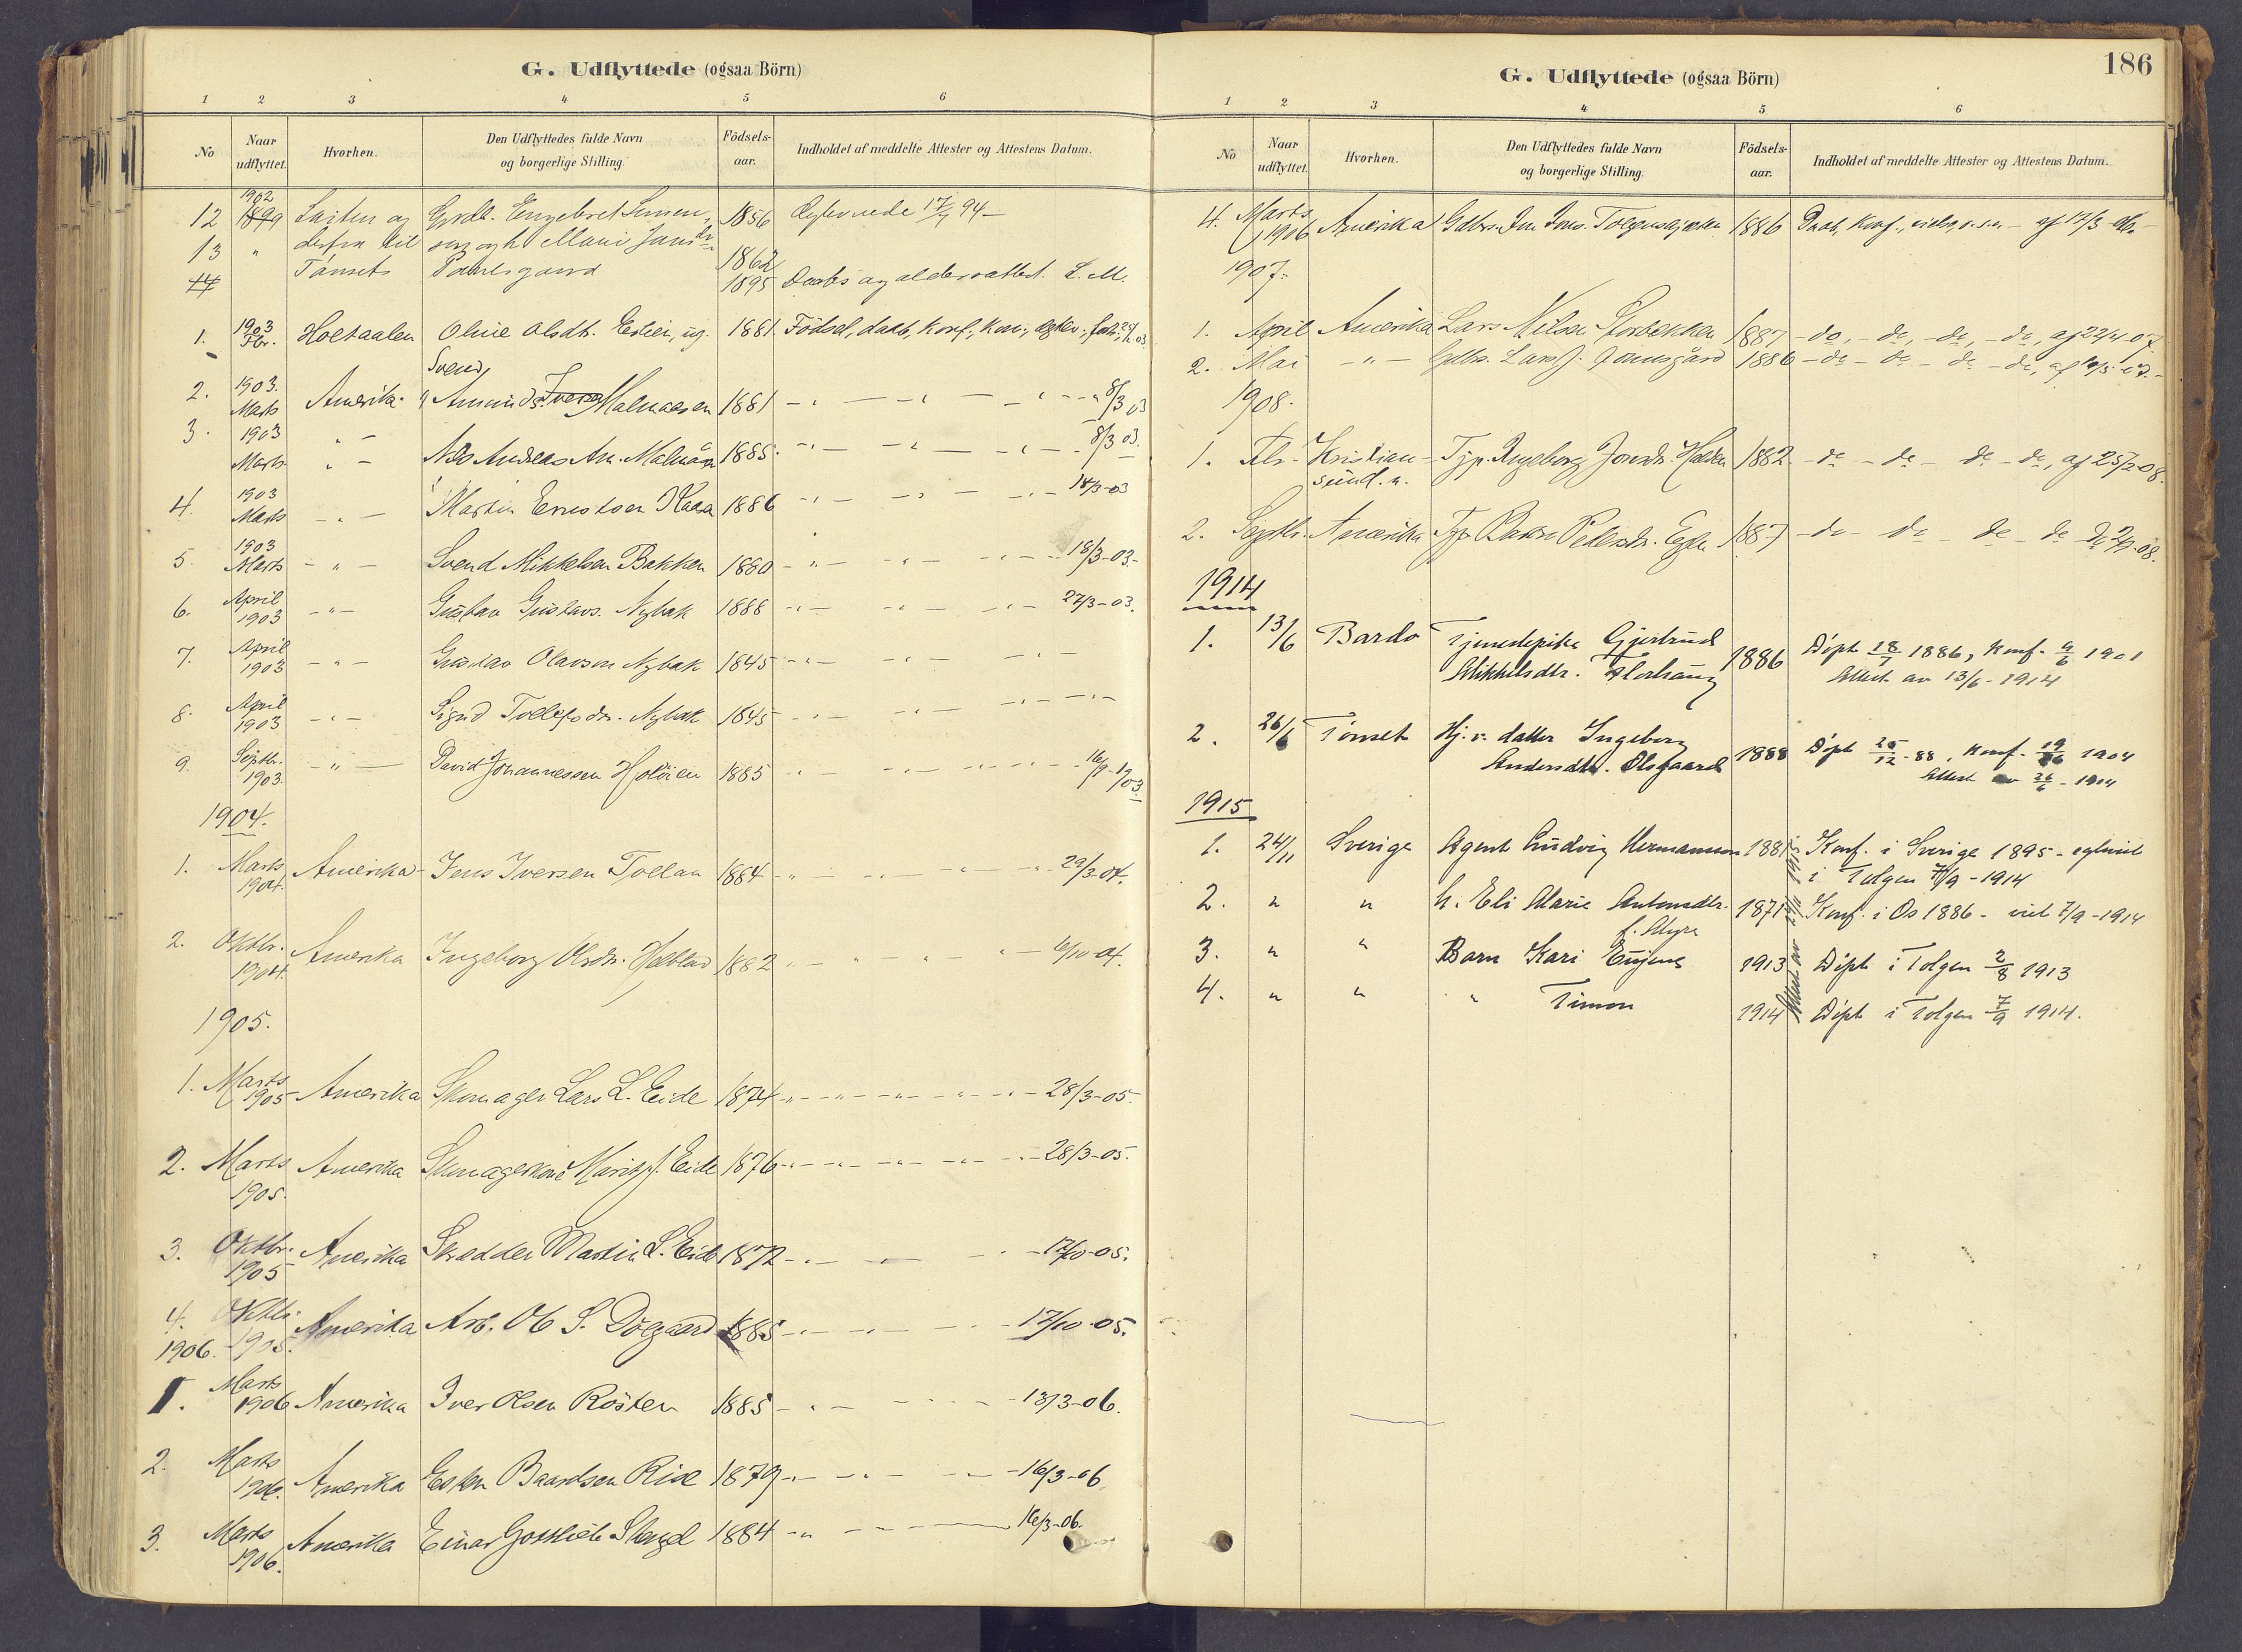 G. Udflyttede (ogsaa Börn)
1 2 3 4 5 6
No
Naar udflyttet.
Hvorhen.
Den Udflyttedes fulde Navn og borgerlige Stilling.
Födsels-aar.
Indholdet af meddelte Attester og Attestens Datum.
12 1902 1899 og Engebret 1856 17/7 94 -
13 " derfra til og h. Mari 1862
Tönset 1895 Daabs og aldersattest. L. M.
1. 1903 Fbr. Holtaalen Oline Olsdtr. ug. 1881. Födsel, daab, konf.,
Svend
2. 1903. Marts Amerika. Amunds. Malmaasen 1881 - " - " - " - 8/3 03
3. 1903 Marts " - Nils Andreas Am. Malmåsen 1885. - " - " - " - 8/3 03.
4. 1903 Marts - " - Martin 1886 - " - " - " - 18/3-03
5. 1903 Marts - " - Svend Mikkelsen Bakken 1880 - " - " - " - 18/3-03.
6. April 1903 - " - Gustav Gustavs. Nybak 1888 - " - " - " - 27/3-03.
7. April 1903 - " - Gustav Olavson Nybak 1845 - " - " - " -
8. April 1903 - " - Sigrid Tollefsdtr. Nybak 1845 - " - " - " -
9. Septbr. 1903. - " - David Johannessen Holöien 1885 - " - " - " - 16/9-1903.
1904.
1. Marts 1904. Amerika Jens Iversen Tollan 1884 - " - " - " - 29/3-04.
2. Oktbr. 1904. Amerika Ingeborg Olsdtr. 1882 - " - " - " - 6/10-04.
1905.
1. Marts 1905 Amerika Skomager Lars L. Eide 1874 - " - " - " - 28/3-05.
2. Marts 1905. Amerika Skomagerkone Marit J. Eide 1876 - " - " - " - 28/3-05.
3. Oktbr. 1905 Amerika Skrædder Martin L. Eide 1872 - " - " - 17/10-05.
4. Oktbr. 1905. Amerika Arb. Ole S. 1885 - " - " - 17/10-05.
1906.
1. Marts 1906 Amerika Iver Olsen Rösten 1885 - " - 13/3-06.
2. Marts 1906. Amerika Esten Baardsen Rise 1879 - " - " - 16/3-06
3. Marts 1906. Amerika Einar Gottlieb 1884 - " - 16/3-06.
186
G. Udflyttede (ogsaa Börn)
1 2 3 4 5 6
No
Naar udflyttet.
Hvorhen.
Den Udflyttedes fulde Navn og borgerlige Stilling.
Födsels-aar.
Indholdet af meddelte Attester og Attestens Datum.
4. Marts 1906 Amerika Gdbrs. Jon Jons. 1886 Daab, Konf., af 17/3
1907.
1. April Amerika Lars Nilsen Storbekken 1887 - do, - do, - do, - do, af 22/4 07.
2. Mai - " - Gdbr. Lars J. 1886 - do - do - do - do, af
1908.
1. Fbr. Kristiansund. n. Tjp. Ingeborg Jonsdtr. Holden 1882 - do - do - do - do, af 25/2 08.
2. Septbr. Amerika Tjp. Pedersdtr. 1887 - do - do - do - do
1914
1. 13/6 Bardo Tjenestepike Gjertrud
Mikkelsdtr. 1886 Döpt 18/7 1886, Konf. 9/6 1901
Attest av 13/6-1914
2. 26/6 Tönset Hj. v. datter Ingeborg
Andersdtr. Olsgaard 1888 Döpt 25/12-88, Konf. 19/6 1904
Attest av 26/6-1914
1915
1. 24/11 Sverige Agent Ludvig Hermansson 1881 Konf. i Sverige 1895 - egteviet
i Tolgen 7/9-1914
2. " " h. Eli Marie Antonsdtr. 1871 Konf. i Os 1886 - viet 7/9-1914
f. Myre
3. " " Barn Kari Eugene 1913 Döpt i Tolgen 2/8 1913
4. " " " Timon 1914 Döpt i Tolgen 7/9 1914.
Attest av 24/11 1915